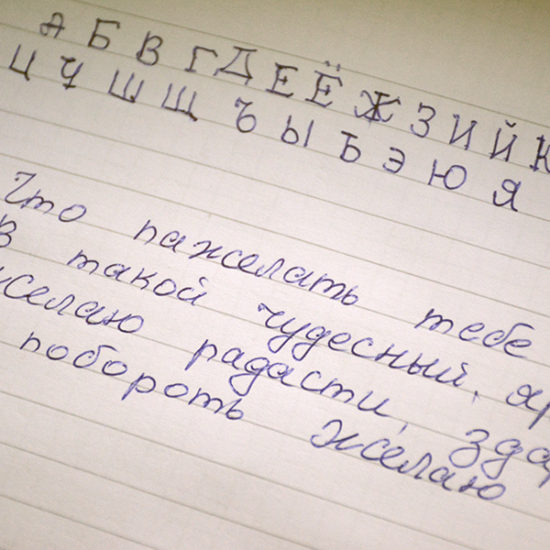 А Б В Г Д Е Ё Ж З И Й К
Ц Ч Ш Щ Ъ Ы Б Э Ю Я
Что пажелать тебе
В такой чудесный, яр
желаю радасти, здар
побороть желаю